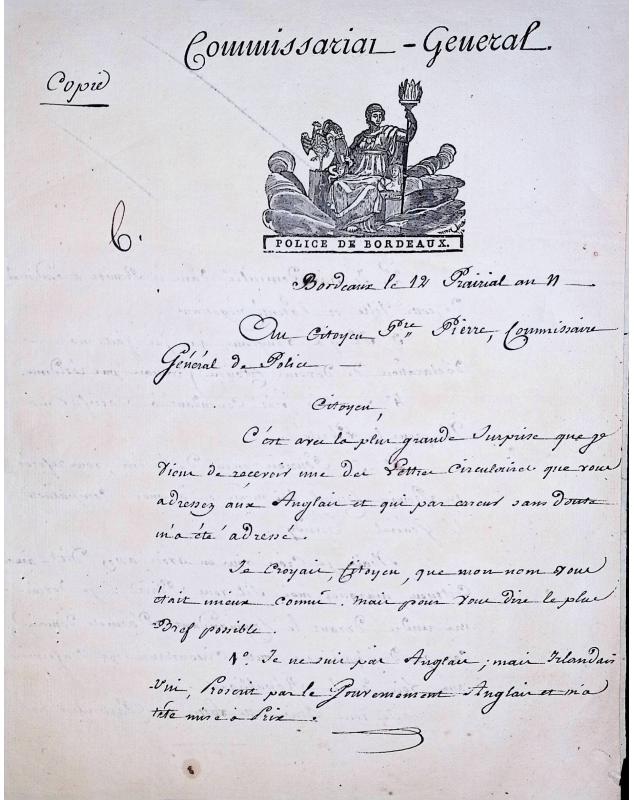 Commissariat - General.
Copie
POLICE DE BORDEAUX.
6.
Bordeaux le 12 Prairial an 11
Au Citoyen Pre Pierre, Commissaire
Général de Police
Citoyen,
C'est avec la plus grande Surprise que je
viens de recevoir une des Lettres Circulaires que vous
adressez aux Anglais et qui par erreur sans doute
m'a été adressé.
Je Croyais, Citoyen, que mon nom vous
était mieux connu. mais pour vous dire le plus
Bref possible.
1º. Je ne suis pas Anglais; mais Irlandais
Uni, Proscrit par le Gouvernement Anglais et m'a
tête mise à Prix.